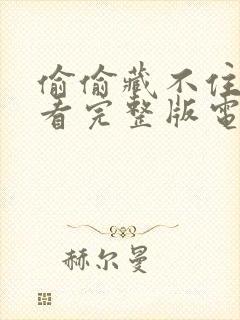 偷偷藏不住
看完整版電
赫尔曼